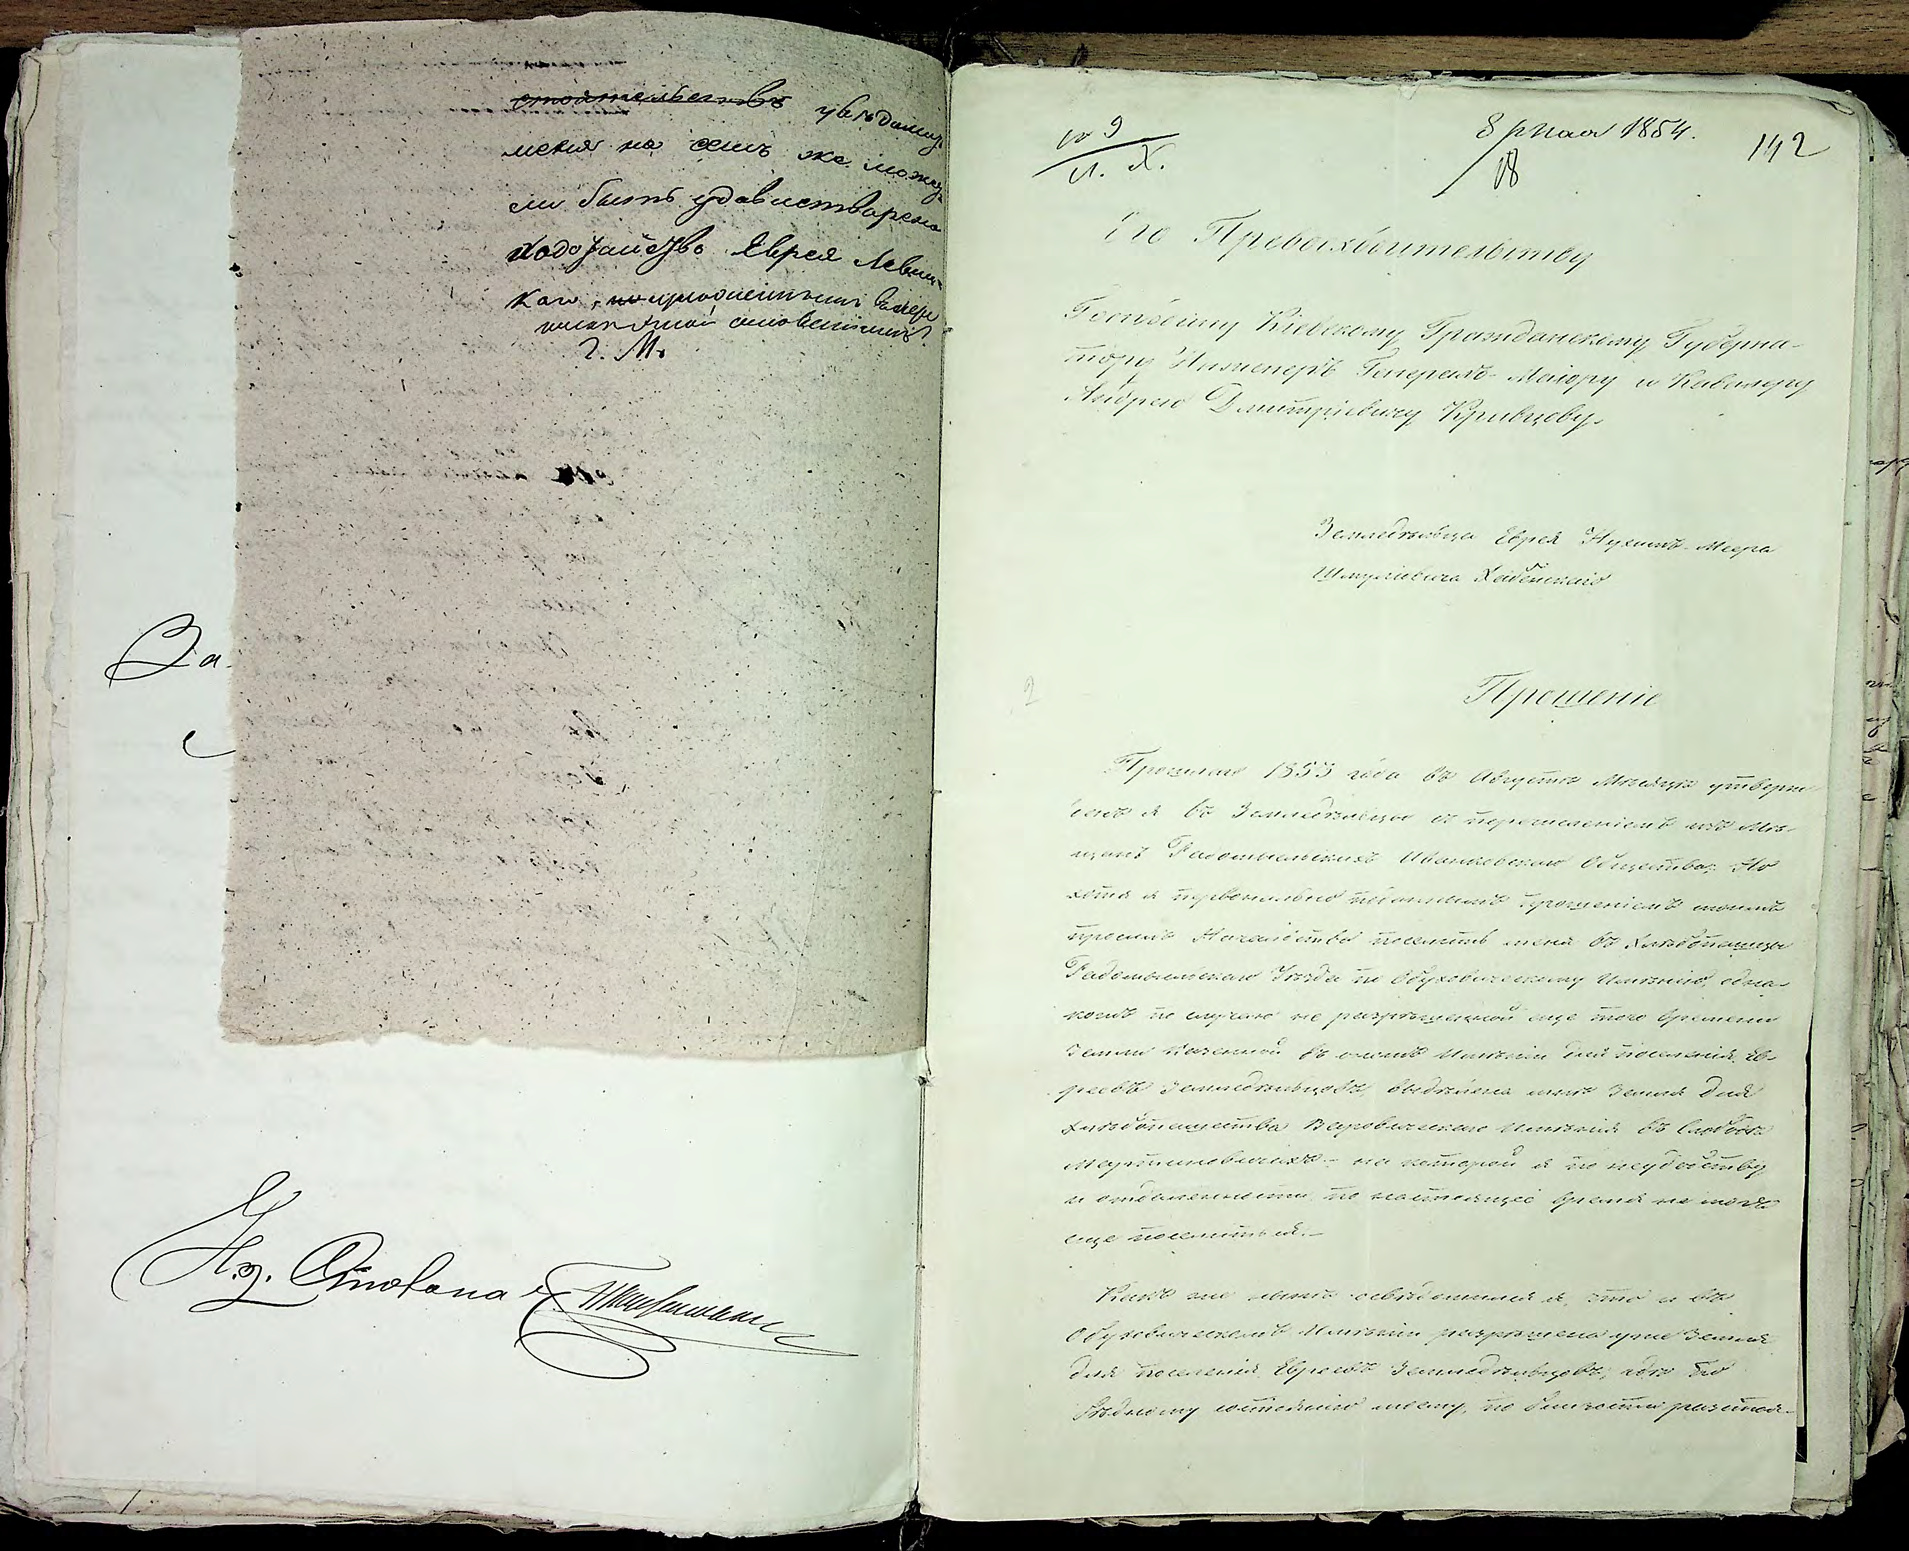 стоятельствъ увѣдомить
меня на семъ же можетъ
ли быть удовлетворено
ходатайство Еврея Левиц-
каго,
г. М.
За-
1854.
18
142
Его Превосходительству
Господину Кіевскому Гражданскому Губерна-
тору Инженеръ Генералъ-Маіору и Кавалеру
Андрею Дмитріевичу Кривцову.
Земледѣльца Еврея Нухимъ-Меера
Шмулевича
Прошеніе
Прошлаго 1853 года въ Августѣ Мѣсяцѣ утверж-
денъ я въ Земледѣльцы съ перечисленіемъ изъ Мѣ-
щанъ Радомысльскихъ Иванковского Общества; Но
хотя я первоначально поданнымъ прошеніемъ моимъ
просилъ Начальство поселить меня въ Хлѣбопашцы
Радомысльскаго Уѣзда по Обуховическому Имѣнію, одна-
кожъ по случаю не разрѣшенной еще того времени
земли казенной въ ономъ Имѣніи для поселенія Ев-
реевъ Земледѣльцовъ, выдѣлена мнѣ земля для
хлѣбопашества Имѣнія въ Слободѣ
Мартиновичахъ - на которой я по неудобству
и отдаленности по настоящее время не могъ
еще поселиться.-
Какъ же нынѣ освѣдомился я, что и въ
Обуховическомъ Имѣніи разрѣшена уже земля
для поселенія Евреевъ Земледѣльцовъ, гдѣ по
бѣдному состоянію моему, по близости разстоя-